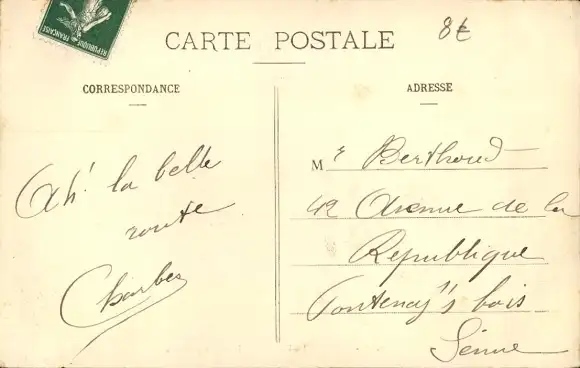 RÉPUBLIQUE FRANÇAISE
CARTE POSTALE
8€
CORRESPONDANCE
ADRESSE
Ah! la belle
route
Charles
Mr Berthoud
42 Avenue de la
République
Fontenay s/s bois
Seine